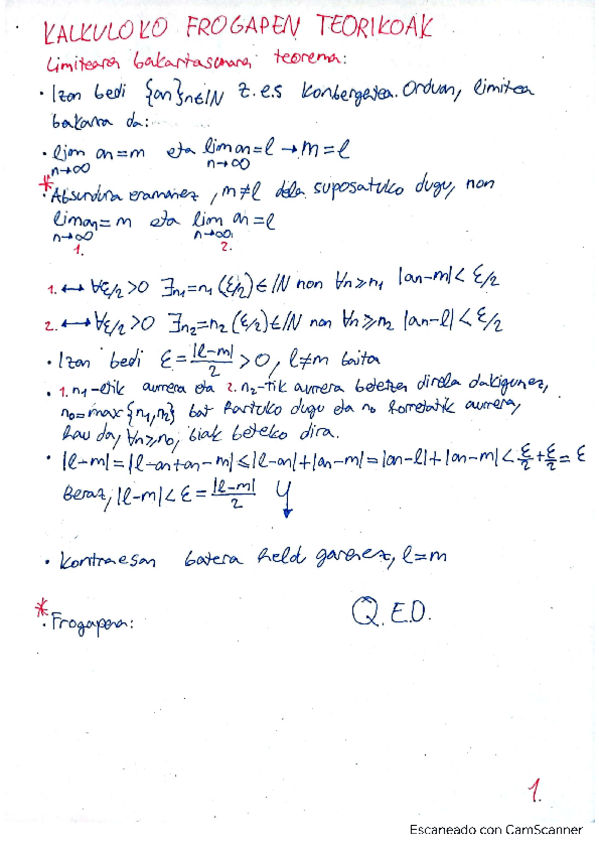 KALKULOKO FROGAPEN TEORIKOAK
Limitearen bakartasunaren teorema:
· Izan bedi {an}n∈IN z.e.s konbergentea. Orduan, limitea
bakarra da:
· lim an=m eta lim an=l → m=l
n→∞ n→∞
* · Absurdura eramanez, m≠l dela suposatuko dugu, non
lim an=m eta lim an=l
n→∞ n→∞
1. 2.
1. ↔ ∀ε/2>0 ∃n1=n1(ε/2)∈IN non ∀n≥n1 |an-m|<ε/2
2. ↔ ∀ε/2>0 ∃n2=n2(ε/2)∈IN non ∀n≥n2 |an-l|<ε/2
· Izan bedi ε=|l-m|/2>0, l≠m baita
· 1. n1-etik aurrera eta 2. n2-tik aurrera betetzen direla dakigunez,
n0=max{n1,n2} bat hartuko dugu eta n0 horretatik aurrera,
hau da, ∀n≥n0, biak beteko dira.
· |l-m|=|l-an+an-m|≤|l-an|+|an-m|=|an-l|+|an-m|<ε/2+ε/2=ε
Beraz, |l-m|<ε=|l-m|/2
· Kontraesan batera heldu garenez, l=m
* · Frogapena: Q.E.D.
1.
Escaneado con CamScanner